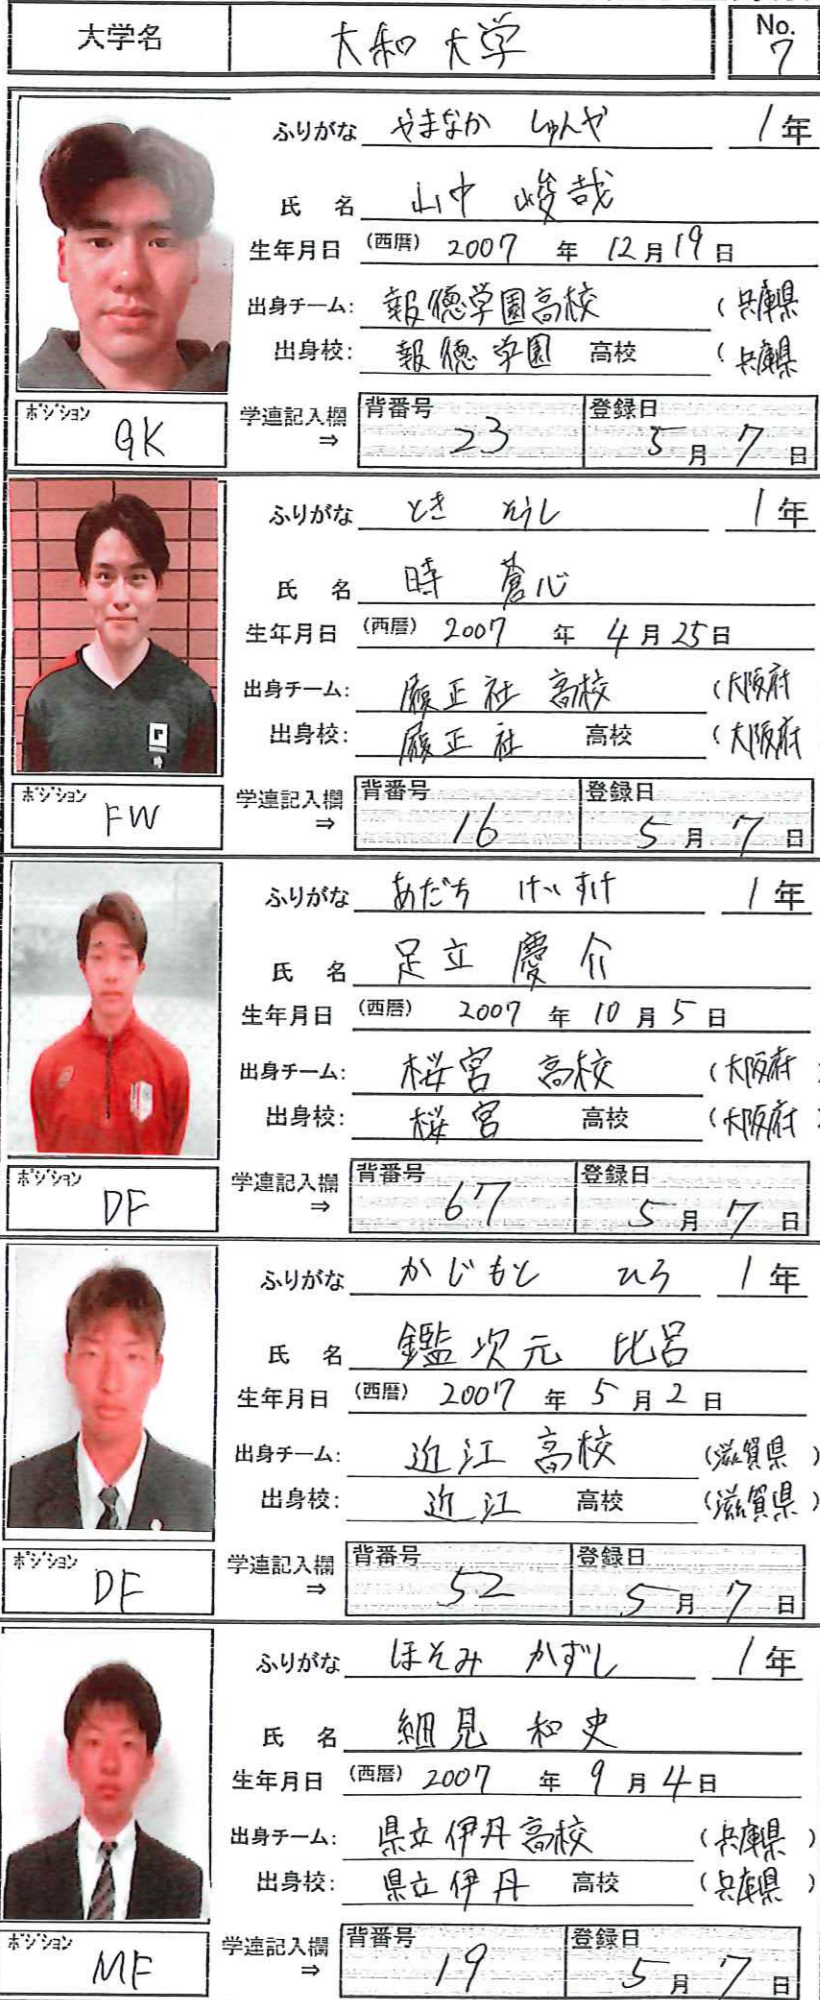 大学名 大和大学 No. 7
ふりがな やまなか しゅんや 1年
氏 名 山中 峻哉
生年月日 (西暦) 2007 年 12月19日
出身チーム: 報徳学園高校 (兵庫県
出身校: 報徳学園 高校 (兵庫県
ポジション GK 学連記入欄 ⇒ 背番号 23 登録日 5月7日
ふりがな とき そうし 1年
氏 名 時 蒼心
生年月日 (西暦) 2007 年 4月25日
出身チーム: 履正社 高校 (大阪府
出身校: 履正社 高校 (大阪府
ポジション FW 学連記入欄 ⇒ 背番号 16 登録日 5月7日
ふりがな あだち けいすけ 1年
氏 名 足立 慶介
生年月日 (西暦) 2007 年 10月5日
出身チーム: 桜宮 高校 (大阪府
出身校: 桜宮 高校 (大阪府
ポジション DF 学連記入欄 ⇒ 背番号 67 登録日 5月7日
ふりがな かじもと ひろ 1年
氏 名 鑑次元 比呂
生年月日 (西暦) 2007 年 5月2日
出身チーム: 近江高校 (滋賀県)
出身校: 近江 高校 (滋賀県)
ポジション DF 学連記入欄 ⇒ 背番号 52 登録日 5月7日
ふりがな ほそみ かずし 1年
氏 名 細見 和史
生年月日 (西暦) 2007 年 9月4日
出身チーム: 県立伊丹高校 (兵庫県)
出身校: 県立伊丹 高校 (兵庫県)
ポジション MF 学連記入欄 ⇒ 背番号 19 登録日 5月7日